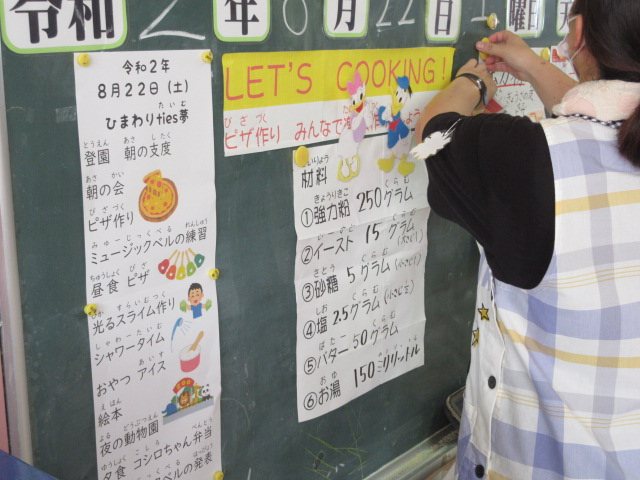 令和2年8月22日 曜日
令和2年
8月22日(土)
ひまわりties夢
たいむ
登園 朝の支度
とうえん あさ したく
朝の会
あさ かい
ピザ作り
ぴざづく
ミュージックベルの練習
みゅーじっくべる れんしゅう
昼食 ピザ
ちゅうしょく ぴざ
光るスライム作り
すらいむつく
シャワータイム
しゃわーたいむ
おやつ アイス
あいす
絵本
えほん
夜の動物園
よる どうぶつえん
夕食 コシロちゃん弁当
べんとう
ベルの発表
LET'S COOKING!
ピザ作り みんなで
ぴざづく
材料
①強力粉 250グラム
きょうりきこ ぐらむ
②イースト 15グラム
ぐらむ
③砂糖 5グラム(小さじ1)
さとう ぐらむ
④塩 2.5グラム
しお ぐらむ
⑤バター 50グラム
ばたー ぐらむ
⑥お湯 150ミリリットル
おゆ みりりっとる